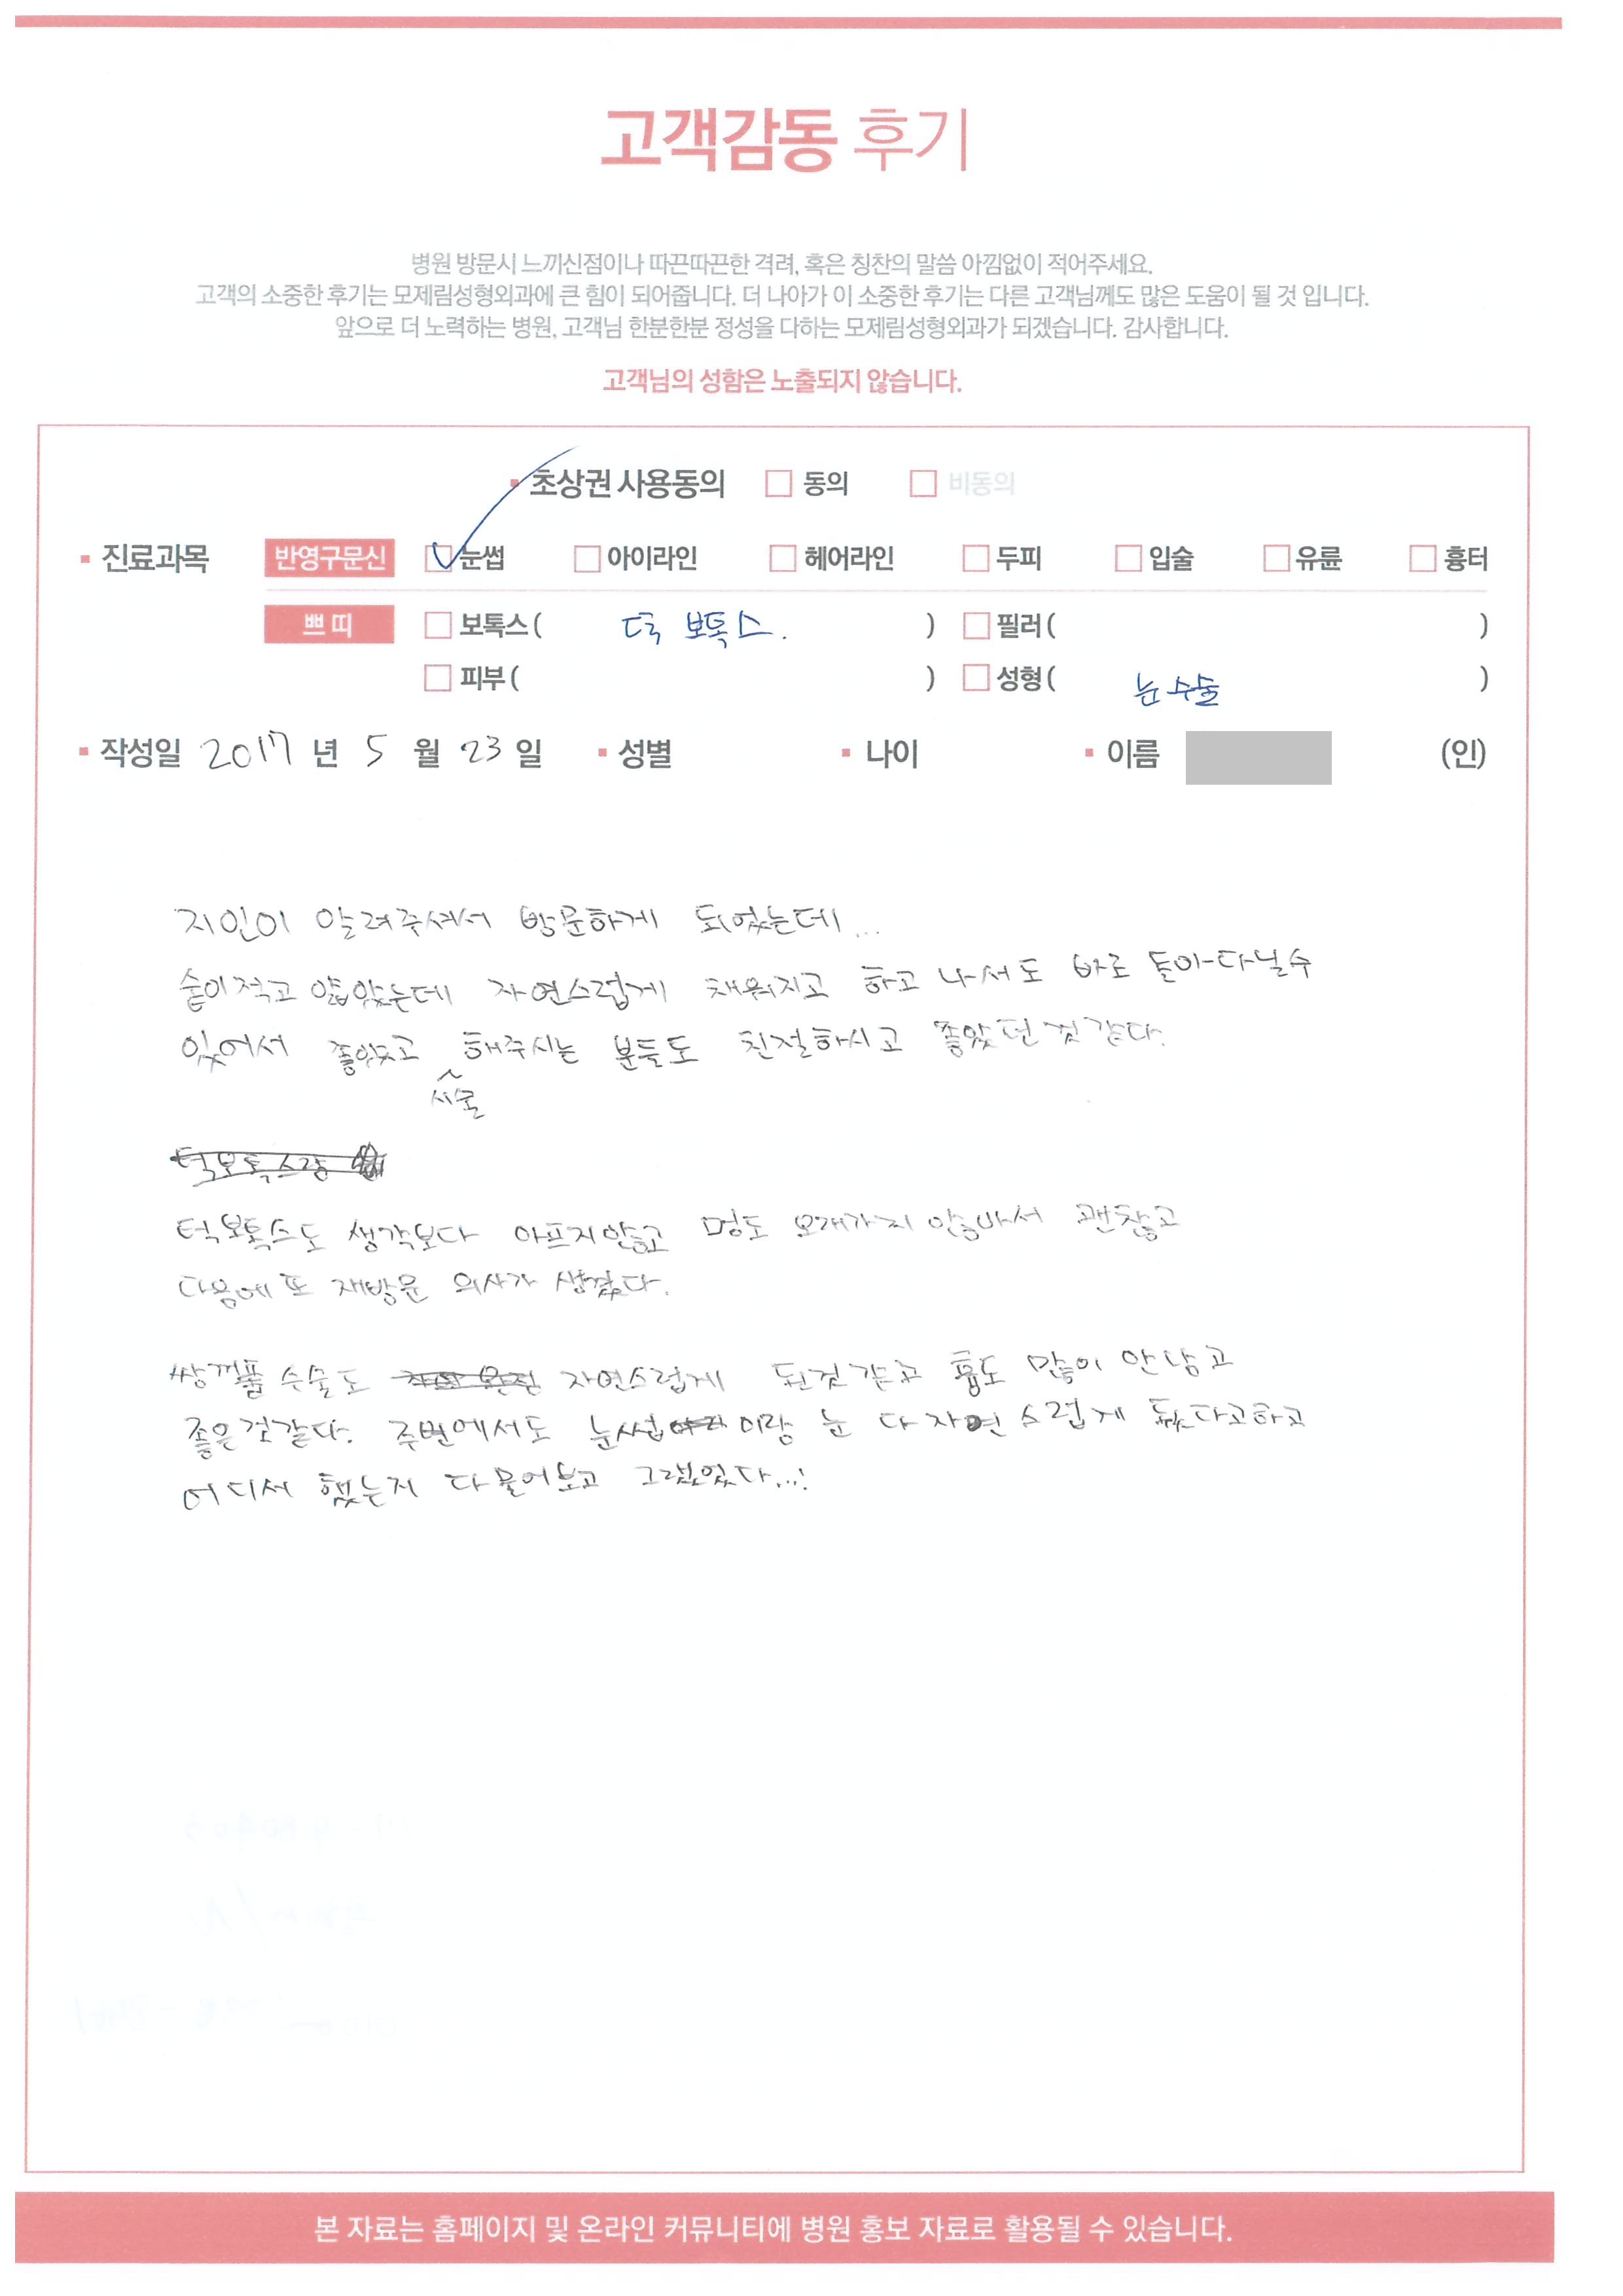 고객감동 후기
병원 방문시 느끼신점이나 따끈따끈한 격려, 혹은 칭찬의 말씀 아낌없이 적어주세요.
고객의 소중한 후기는 모제림성형외과에 큰 힘이 되어줍니다. 더 나아가 이 소중한 후기는 다른 고객님께도 많은 도움이 될 것 입니다.
앞으로 더 노력하는 병원, 고객님 한분한분 정성을 다하는 모제림성형외과가 되겠습니다. 감사합니다.
고객님의 성함은 노출되지 않습니다.
초상권 사용동의 동의 비동의
진료과목 반영구문신 눈썹 아이라인 헤어라인 두피 입술 유륜 흉터
쁘띠 보톡스 ( 턱 보톡스. ) 필러 ( )
피부 ( ) 성형 ( 눈수술 )
작성일 2017 년 5 월 23 일 성별 나이 이름 (인)
지인이 알려주셔서 방문하게 되었는데...
숱이적고 얇았는데 자연스럽게 채워지고 하고 나서도 바로 돌아다닐수
있어서 좋았고 해주시는 분들도 친절하시고 좋았던것 같다.
시술
턱보톡스랑
턱보톡스도 생각보다 아프지않고 멍도 오래가지 않아서 괜찮고
다음에 또 재방문 의사가 생겼다.
쌍꺼풀 수술도 자연스럽게 된것같고 흉도 많이 안남고
좋은것같다. 주변에서도 눈썹이랑 눈 다 자연스럽게 됐다고하고
어디서 했는지 다 물어보고 그랬었다...!
본 자료는 홈페이지 및 온라인 커뮤니티에 병원 홍보 자료로 활용될 수 있습니다.